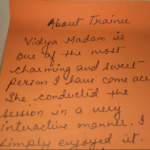 About Trainer
Vidya Madam is
one of the most
charming and sweet
person I have come acr
She conducted the
session in a very
interactive manner. I
simply enjoyed it.